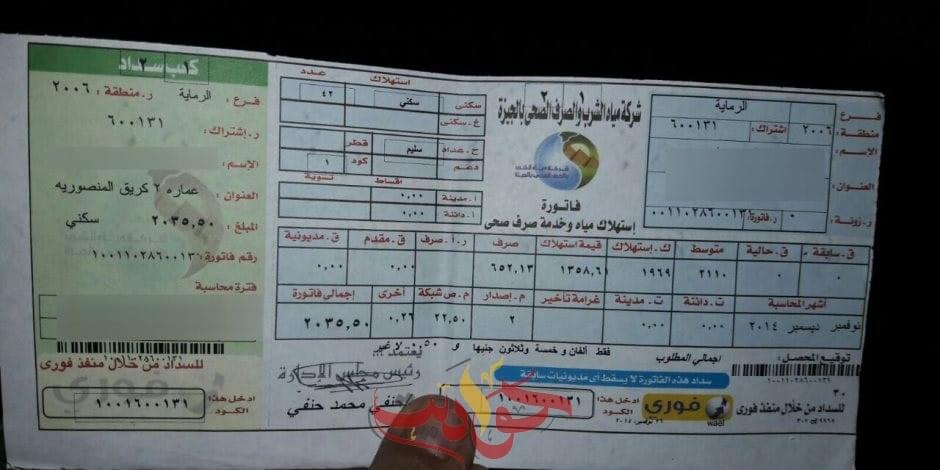 شركة مياه الشرب والصرف الصحى بالجيزة
فاتورة
إستهلاك مياه وخدمة صرف صحى
فرع : الرماية
منطقة : ٢٠٠٦ اشتراك : ٦٠٠١٣١
الإسم :
العنوان :
ر.فاتورة :
استهلاك عدد
سكنى سكني ٤٢
غ.سكنى
ح.عداد سليم قطر
دعم كود ١
اقساط تسوية
ا.مدينة ٠,٠٠
ا.دائنة ٠,٠٠
ق.سابقة ق.حالية متوسط ك.إستهلاك قيمة الاستهلاك صرف ر.أ.صرف ق.مقدم ق.مديونية
٠ ٠ ٢١١٠ ١٩٦٩ ١٣٥٨,٦١ ٦٥٢,١٣ ٠,٠٠ ٠,٠٠
اشهر المحاسبة ت.دائنة ت.مدينة غرامة تأخير م.إصدار م.ص شبكة أخرى إجمالي فاتورة
نوفمبر ديسمبر ٢٠١٤ ٠,٠٠ ٠,٠٠ ٢ ٢٢,٥٠ ٠,٢٦ ٢٠٣٥,٥٠
توقيع المحصل :
اجمالي المطلوب فقط ألفان و خمسة وثلاثون جنيها و ٠,٥٠ لا غير
سداد هذه الفاتورة لا يسقط أى مديونيات سابقة
يعتمد
رئيس مجلس الادارة
حنفي محمد حنفي
للسداد من خلال منفذ فورى
فوري
wael
ادخل هذا الكود : ١٠٠١٦٠٠١٣١
كعب سداد
فرع : الرماية ر.منطقة : ٢٠٠٦
ر.إشتراك : ٦٠٠١٣١
الإسم :
العنوان : عماره ٢ كريق المنصوريه
المبلغ : ٢٠٣٥,٥٠ سكني
رقم فاتورة : ١٠٠١١٠٢٨٦٠٠١٣١
فترة محاسبة
للسداد من خلال منفذ فورى
ادخل هذا الكود : ١٠٠١٦٠٠١٣١
فوري
حوادث